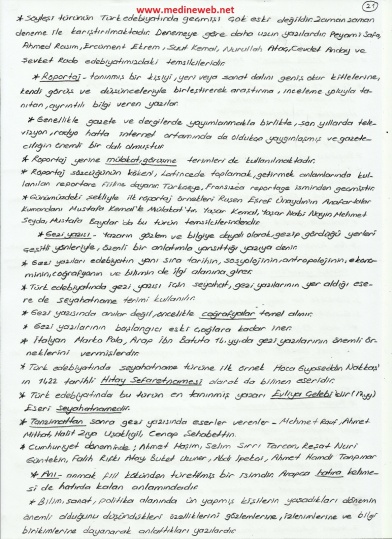 www.medineweb.net
21
* Söyleşi türünün Türk edebiyatında geçmişi çok eski değildir. Zaman zaman
deneme ile karıştırılmaktadır. Denemeye göre daha uzun yazılardır. Peyami Safa,
Ahmed Rasim, Ercüment Ekrem, Suut Kemal, Nurullah Ataç, Cevdet Anday ve
Şevket Rado edebiyatımızdaki temsilcileridir.
* Röportaj - tanınmış bir kişiyi, yeri veya sanat dalını geniş okur kitlelerine,
kendi görüş ve düşünceleriyle birleştirerek araştırma, inceleme yoluyla ta-
nıtan, ayrıntılı bilgi veren yazılar.
* Genellikle gazete ve dergilerde yayınlanmakla birlikte, son yıllarda tele-
vizyon, radyo hatta internet ortamında da oldukça yaygınlaşmış ve gazete-
ciliğin önemli bir dalı olmuştur.
* Röportaj yerine mülakat, görüşme terimleri de kullanılmaktadır.
* Röportaj sözcüğünün kökeni, Latincede toplamak, getirmek anlamlarında kul-
lanılan reportare fiiline dayanır. Türkçeye, Fransızca reportage isminden geçmiştir.
* Günümüzdeki şekliyle ilk röportaj örnekleri Ruşen Eşref Ünaydın'ın Anafartalar
Kumandanı Mustafa Kemal'le Mülakat'tır. Yaşar Kemal, Yaşar Nabi Nayır, Mehmet
Seyda, Mustafa Baydar da bu türün temsilcilerindendir.
* Gezi yazısı - Yazarın gözlem ve bilgiye dayalı olarak gezip gördüğü yerleri
çeşitli yönleriyle, özenli bir anlatımla yansıttığı yazıya denir.
* Gezi yazıları edebiyatın yanı sıra tarihin, sosyolojinin, antropolojinin, ekono-
mininin, coğrafyanın ve bilimin de ilgi alanına girer.
* Türk edebiyatında gezi yazısı için seyahat, gezi yazılarının yer aldığı ese-
re de seyahatname terimi kullanılır.
* Gezi yazısında anılar değil, öncelikle coğrafyalar temel alınır.
* Gezi yazılarının başlangıcı eski çağlara kadar iner.
* İtalyan Marko Polo, Arap İbn Batuta 14. yy.da gezi yazılarının önemli ör-
neklerini vermişlerdir.
* Türk edebiyatında seyahatname türüne ilk örnek Hoca Gıyaseddin Nakkaş'
ın 1422 tarihli Hıtay Sefaretnamesi olarak da bilinen eseridir.
* Türk edebiyatında bu türün en tanınmış yazarı Evliya Çelebi'dir (17.yy)
Eseri Seyahatnamedir.
* Tanzimattan sonra gezi yazısında eserler verenler - Mehmet Rauf, Ahmet
Mithat, Halit Ziya Uşaklıgil, Cenap Şehabettin.
* Cumhuriyet döneminde; Ahmet Haşim, Selim Sırrı Tarcan, Reşat Nuri
Güntekin, Falih Rıfkı Atay, Buket Uzuner, Abdi İpekçi, Ahmet Hamdi Tanpınar
* Anı - anmak fiil kökünden türetilmiş bir isimdir. Arapça hatıra kelime-
si de hatırda kalan anlamındadır.
* Bilim, sanat, politika alanında ün yapmış kişilerin yaşadıkları dönemin
önemli olduğunu düşündükleri özelliklerini gözlemlerine, izlenimlerine ve bilgi
birikimlerine dayanarak anlattıkları yazılardır.